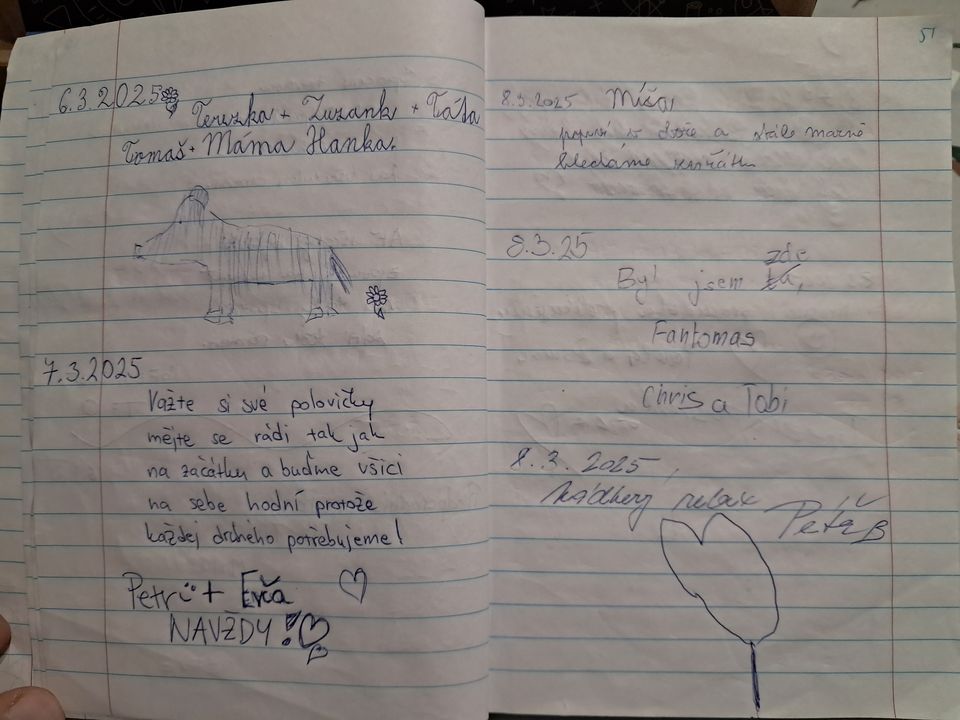 6.3.2025
Terezka + Zuzank + Tába
Tomaš + Máma Hanka.
7.3.2025
Važte si své polovičky
mějte se rádi tak jak
na začátku a buďme všici
na sebe hodní protože
každej druhého potřebujeme!
Petr + Erča
NAVŽDY!
51
8.3.2025 Míša
poprvé v a stále marně
hledáme
8.3.25
Byl jsem zde
Fantomas
Chris a Tobi
8.3.2025
Nádherný relax